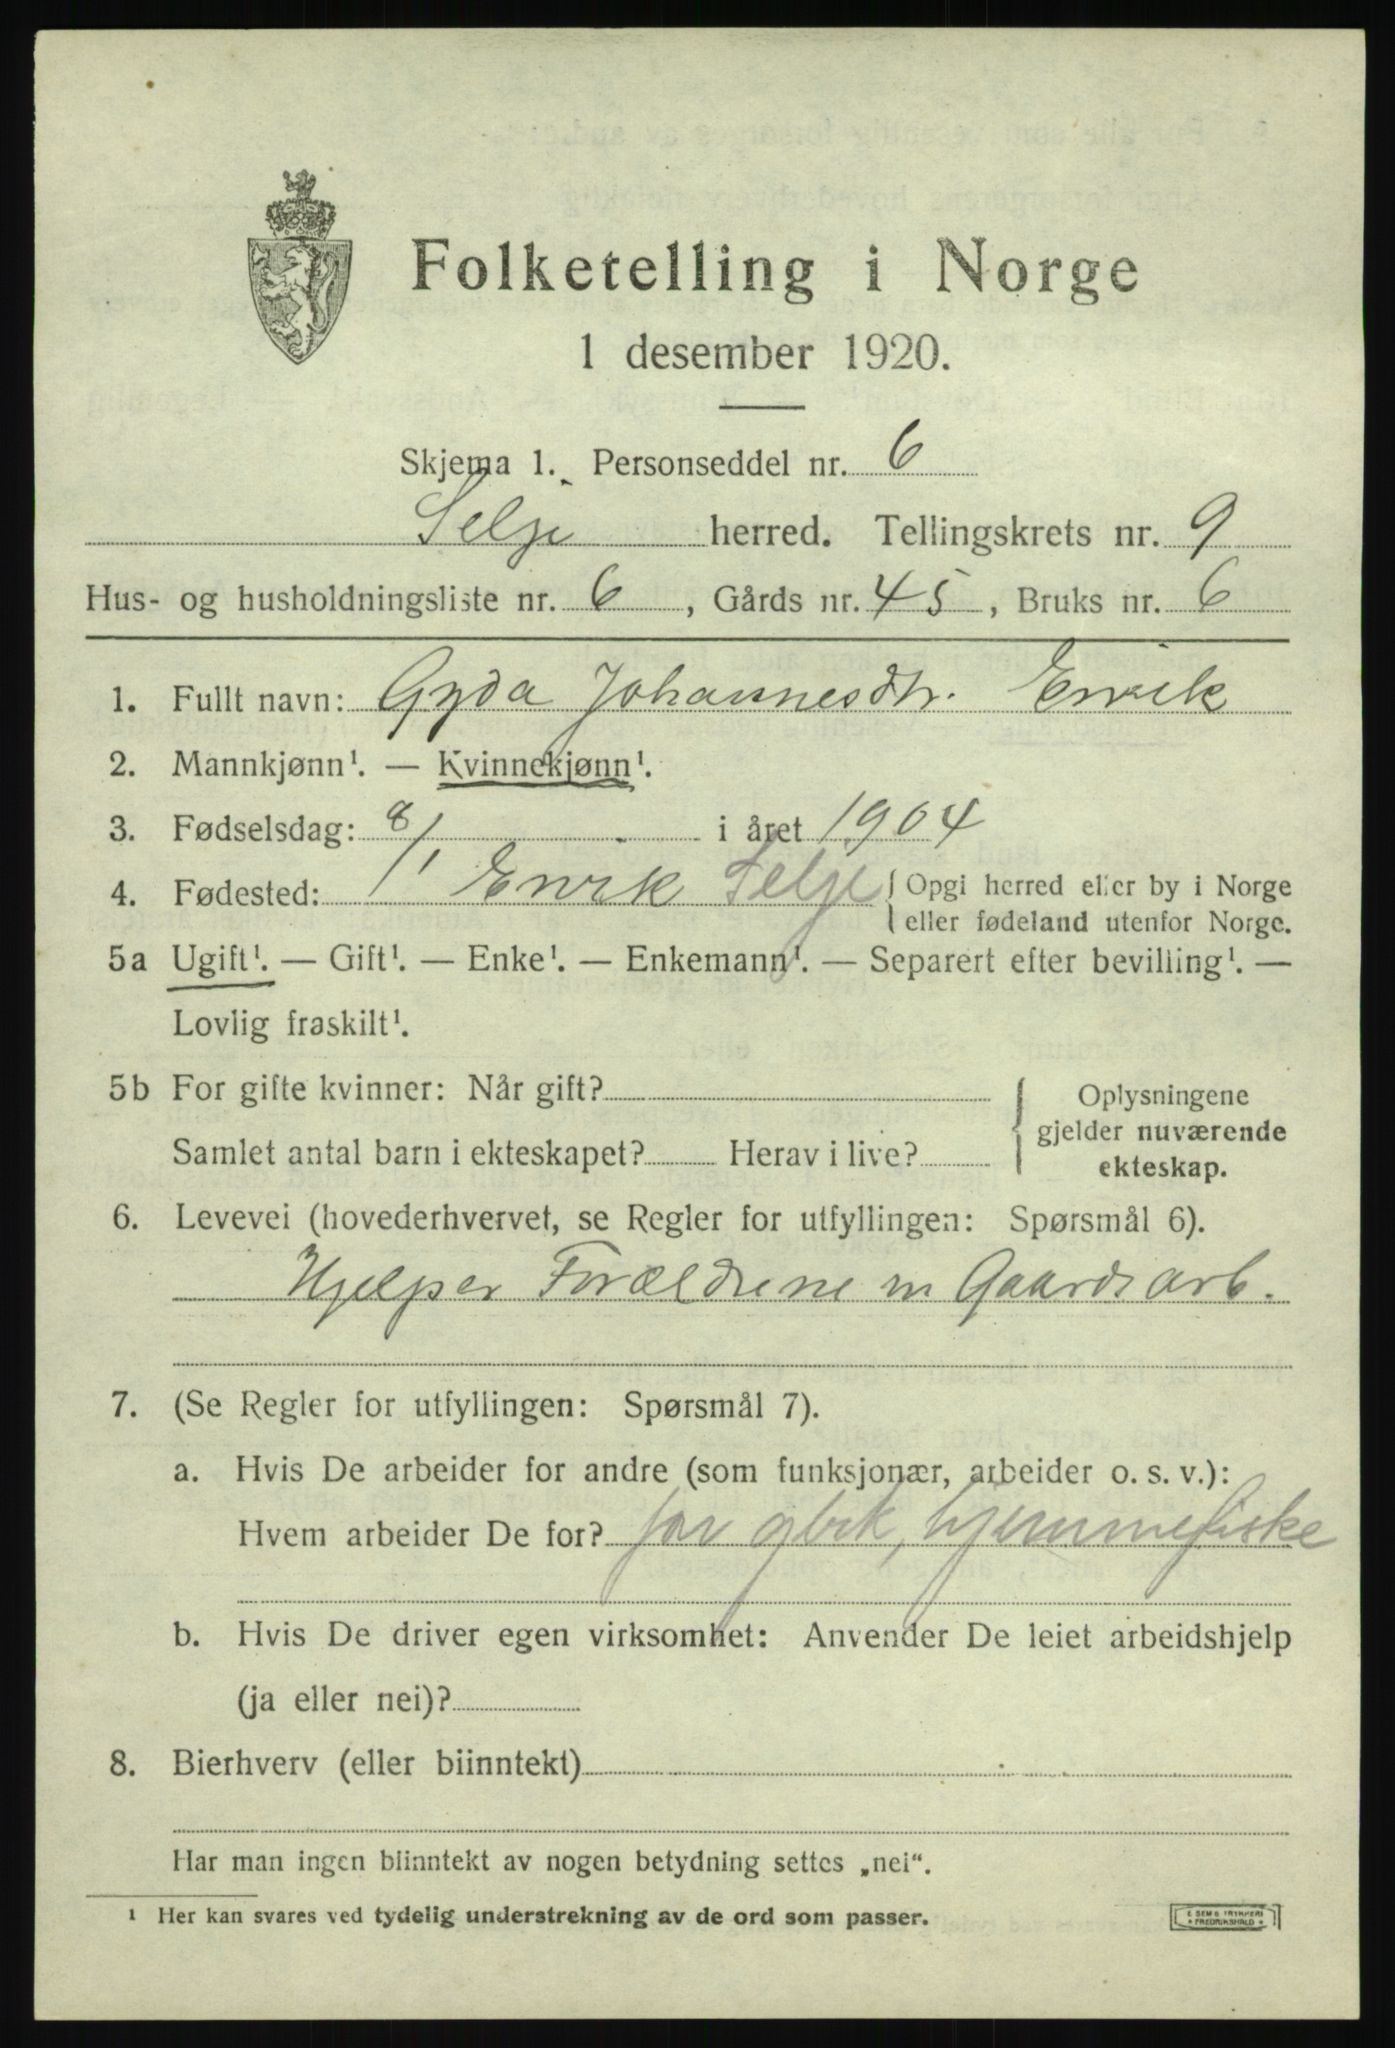 Folketelling i Norge
1 desember 1920.
Skjema 1. Personseddel nr. 6
Selje herred. Tellingskrets nr. 9
Hus- og husholdningsliste nr. 6, Gårds nr. 45, Bruks nr. 6
1. Fullt navn: Gyda Johannesdtr. Ervik
2. Mannkjønn¹. — Kvinnekjønn¹.
3. Fødselsdag: 8/1 i året 1904
4. Fødested: Ervik Selje {Opgi herred eller by i Norge
eller fødeland utenfor Norge.
5a Ugift¹. — Gift¹. — Enke¹. — Enkemann¹. — Separert efter bevilling¹. —
Lovlig fraskilt¹.
5b For gifte kvinner: Når gift?
Samlet antal barn i ekteskapet? Herav i live?
{Oplysningene
gjelder nuværende
ekteskap.
6. Levevei (hovederhvervet, se Regler for utfyllingen: Spørsmål 6).
Hjelper Forældrene m Gaardsarb.
7. (Se Regler for utfyllingen: Spørsmål 7).
a. Hvis De arbeider for andre (som funksjonær, arbeider o. s. v.):
Hvem arbeider De for? far gbrk, hjemmefiske
b. Hvis De driver egen virksomhet: Anvender De leiet arbeidshjelp
(ja eller nei)?
8. Bierhverv (eller biinntekt)
Har man ingen biinntekt av nogen betydning settes „nei“.
¹ Her kan svares ved tydelig understrekning av de ord som passer.
E SEM'S TRYKKERI
FREDRIKSHALD